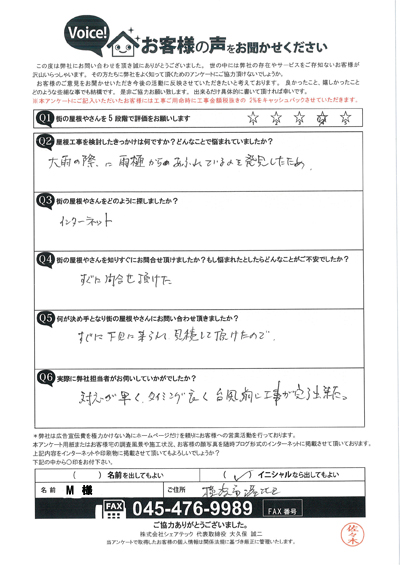 Voice!
お客様の声をお聞かせください
この度は弊社にお問い合わせを頂き誠にありがとうございました。世の中には弊社の存在やサービスをご存知ないお客様が
沢山いらっしゃいます。その方たちに弊社をよく知って頂くためのアンケートにご協力頂けないでしょうか。
お客様のご意見をお聞かせいただき今後の活動に反映させていただきたいと考えております。良かったこと、嬉しかったこと
どのような些細な事でも結構です。是非ご協力お願い致します。出来るだけ具体的に書いて頂ければ幸いです。
※本アンケートにご記入いただいたお客様には工事ご用命時に工事金額税抜きの2%をキャッシュバックさせていただきます。
Q1 街の屋根やさんを5段階で評価をお願いします ☆ ☆ ☆ ☆ ☆
Q2 屋根工事を検討したきっかけは何ですか?どんなことで悩まれていましたか?
大雨の際に雨樋からあふれているのを発見したため
Q3 街の屋根やさんをどのように探しましたか?
インターネット
Q4 街の屋根やさんを知りすぐにお問合せ頂けましたか?もし悩まれたとしたらどんなことがご不安でしたか?
すぐに問合せ頂けた
Q5 何が決め手となり街の屋根やさんにお問い合わせ頂きましたか?
すぐに下見に来られて見積して頂けたので
Q6 実際に弊社担当者がお伺いしていかがでしたか?
対応が早く、タイミング良く台風前に工事が完了出来た。
※弊社は広告宣伝費を極力かけない為にホームページだけを頼りにお客様への営業活動を行っております。
本アンケート用紙またはお客様宅の調査風景や施工状況、お客様の顔写真を随時ブログ形式のインターネットに掲載させて頂いております。
上記内容をインターネットや印刷物に掲載させて頂いてもよろしいでしょうか?
下記の中から○印をお付け下さい。
( )名前を出してもよい ( ✓ )イニシャルなら出してもよい
名前 M 様 ご住所 横浜市
FAX 045-476-9989 FAX番号
ご協力ありがとうございました。
株式会社シェアテック 代表取締役 大久保 誠二
当アンケートで取得したお客様の個人情報は関係法規に基づき厳正に管理いたします。
佐々木